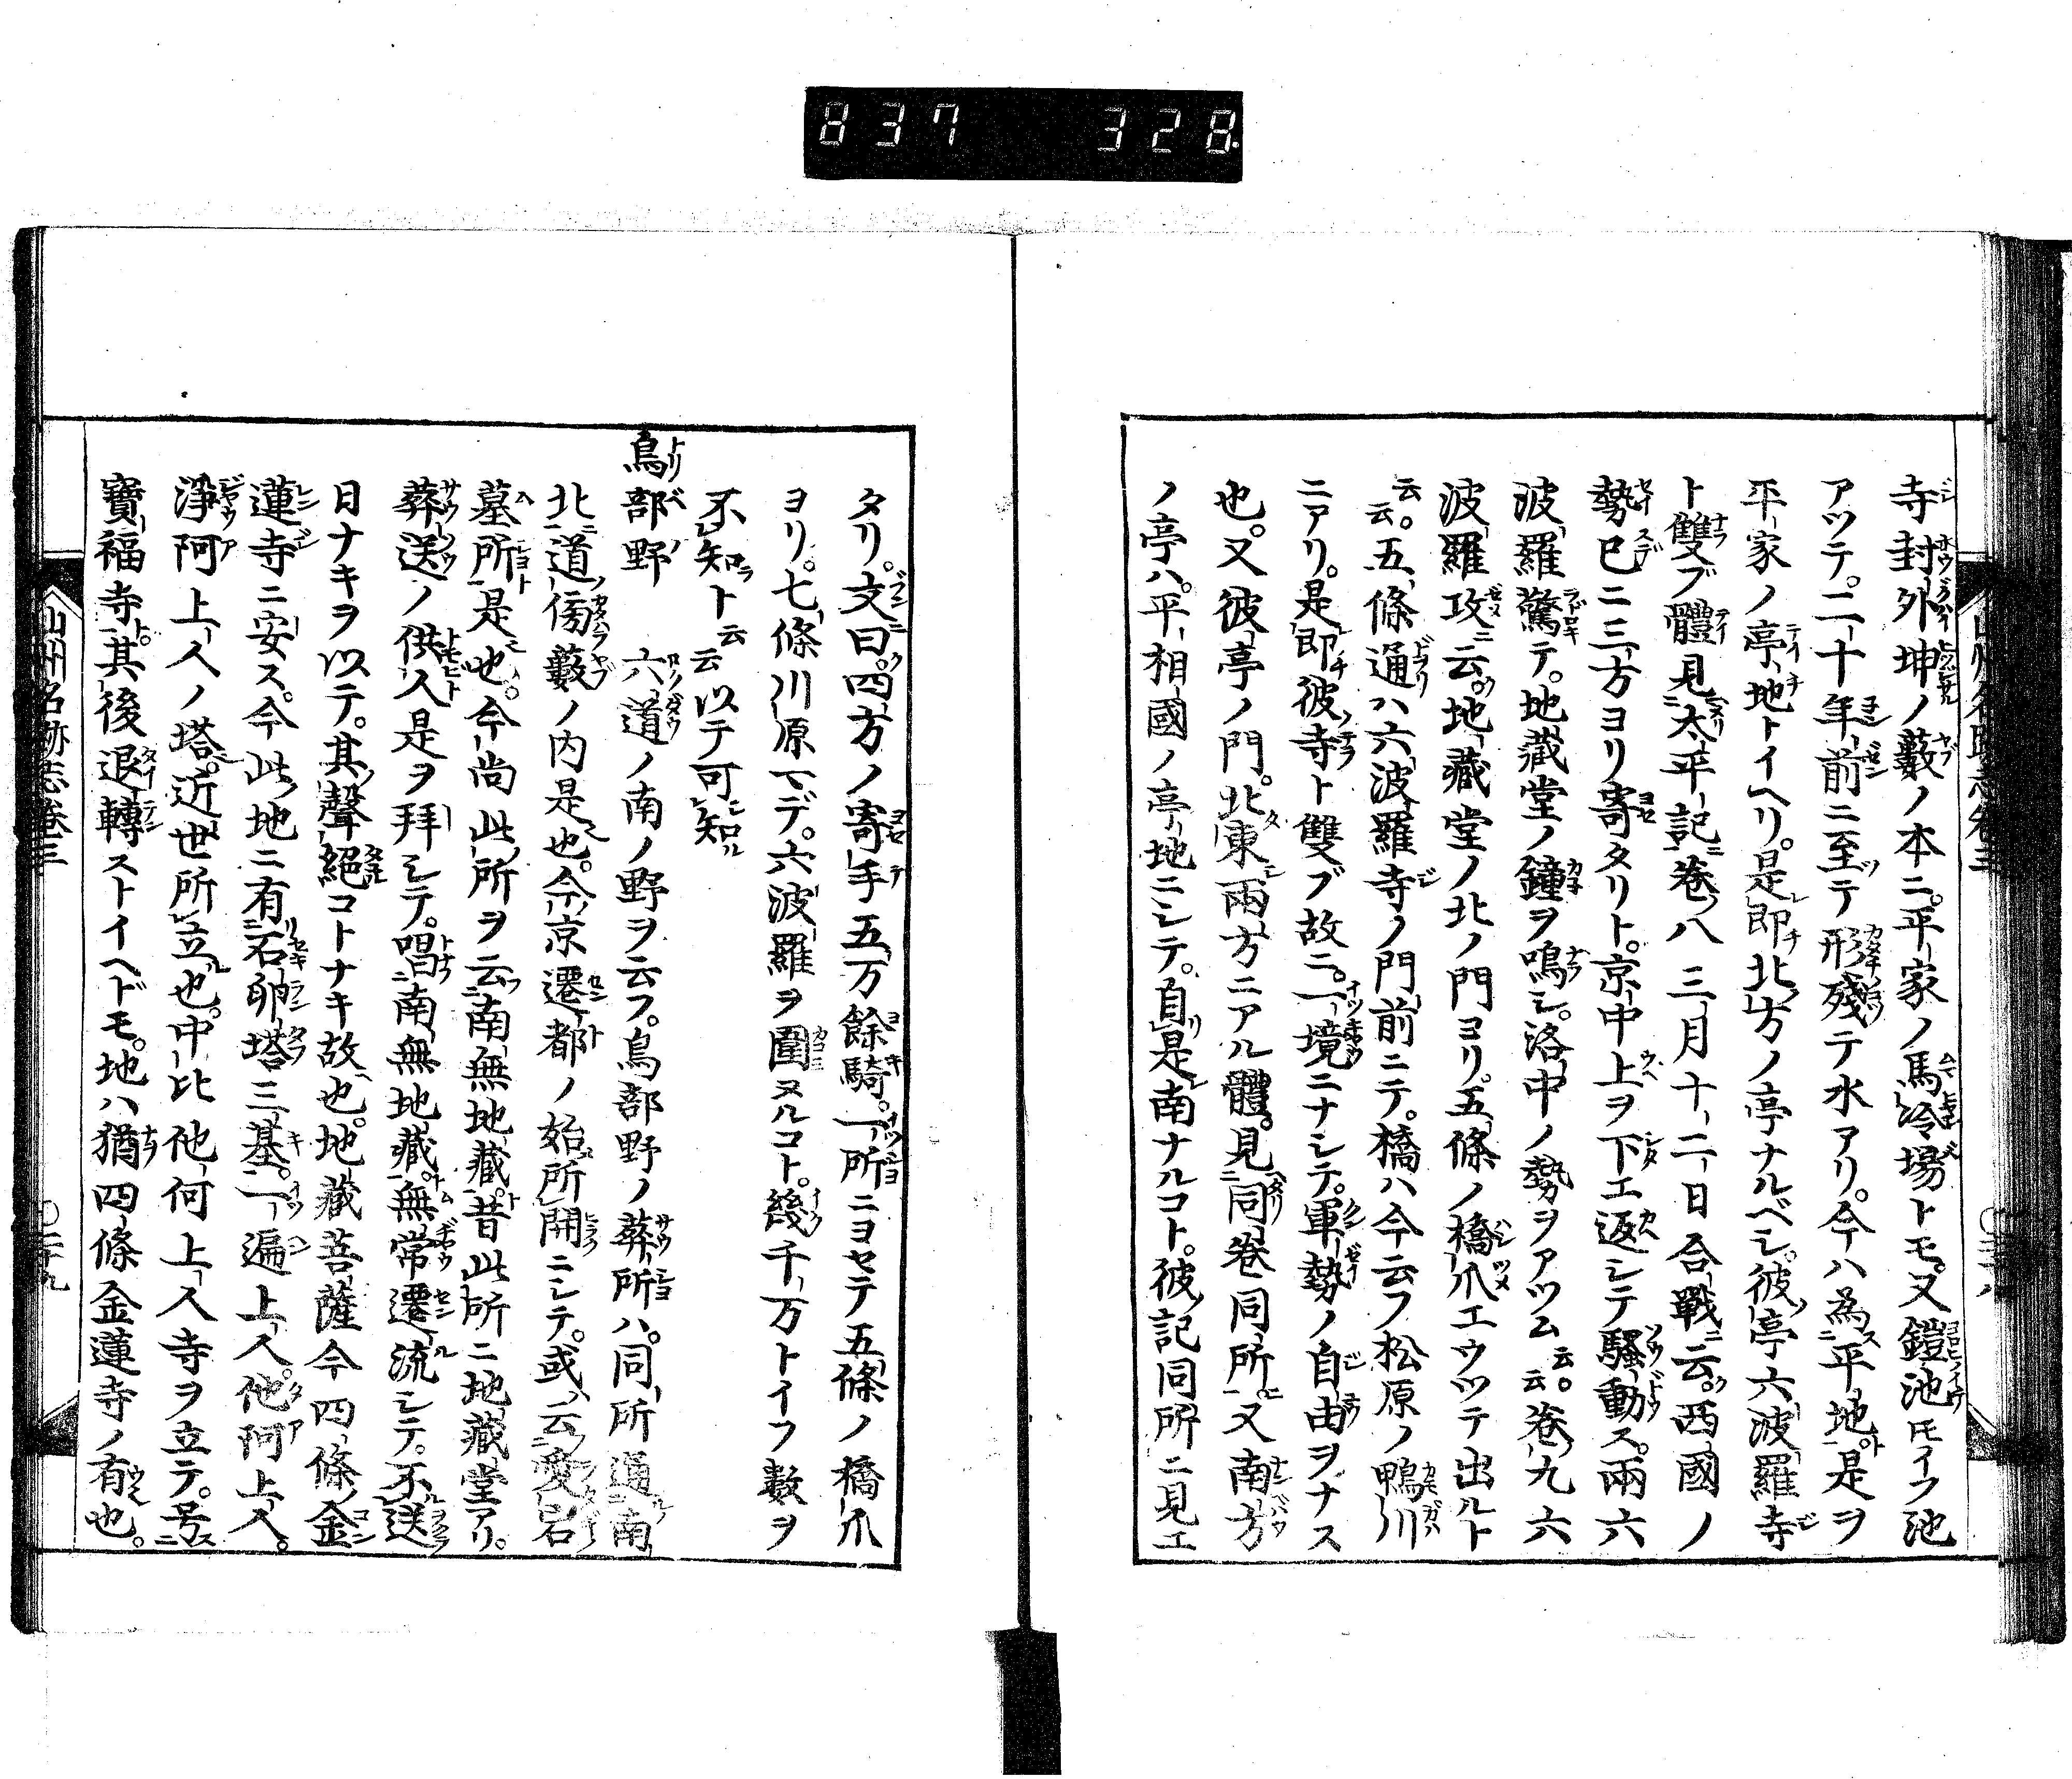 837 328
寺封外坤ノ藪ノ本ニ。平家ノ馬冷場トモ。又鎧池トモイフ池
アツテ。二十年前ニ至テ形残テ水アリ。今ハ為平地。是ヲ
平家ノ亭地トイヘリ。是即チ北方ノ亭ナルベシ。彼亭六波羅寺
ト雙ブ體見太平記巻八三月十二日合戰云。西國ノ
勢已ニ三方ヨリ寄タリト。京中上ヲ下エ返シテ騒動ス。兩六
波羅驚テ。地藏堂ノ鐘ヲ鳴シ。洛中ノ勢ヲアツム云云。巻九六
波羅攻ニ云。地藏堂ノ北ノ門ヨリ。五條ノ橋爪エウツテ出ルト
云云。五條通ハ六波羅寺ノ門前ニテ。橋ハ今云フ松原ノ鴨川
ニアリ。是即チ彼寺ト雙ブ故ニ。一境ニナシテ。軍勢ノ自由ヲナス
也。又彼亭ノ門。北東兩方ニアル體。見同巻同所。又南方
ノ亭ハ。平相國ノ亭地ニシテ。自是南ナルコト。彼記同所ニ見エ
山州名跡志巻三
〇二十八
タリ。文曰。四方ノ寄手五万餘騎。一所ニヨセテ五條ノ橋爪
ヨリ。七條川原マデ。六波羅ヲ圍ヌルコト。幾千万トイフ数ヲ
不知ト云云以テ可知
鳥部野 六道ノ南ノ野ヲ云フ。鳥部野ノ葬所ハ。同所通南
北道傍藪ノ内是也。今京遷都ノ始所開ニシテ。或云愛宕
墓所是也。今尚此所ヲ云南無地藏。昔此所ニ地藏堂アリ。
葬送ノ供人是ヲ拜シテ。唱南無地藏。無常遷流シテ。不送
日ナキヲ以テ。其聲絕コトナキ故也。地藏菩薩今四條金
蓮寺ニ安ス。今此地ニ有石卵塔三基。一遍上人他阿上人。
浄阿上人ノ塔。近世所立也。中比他何上人寺ヲ立テ。号
寶福寺。其後退轉ストイヘドモ。地ハ猶四條金蓮寺ノ有也。
山州名跡志巻三
〇二十九